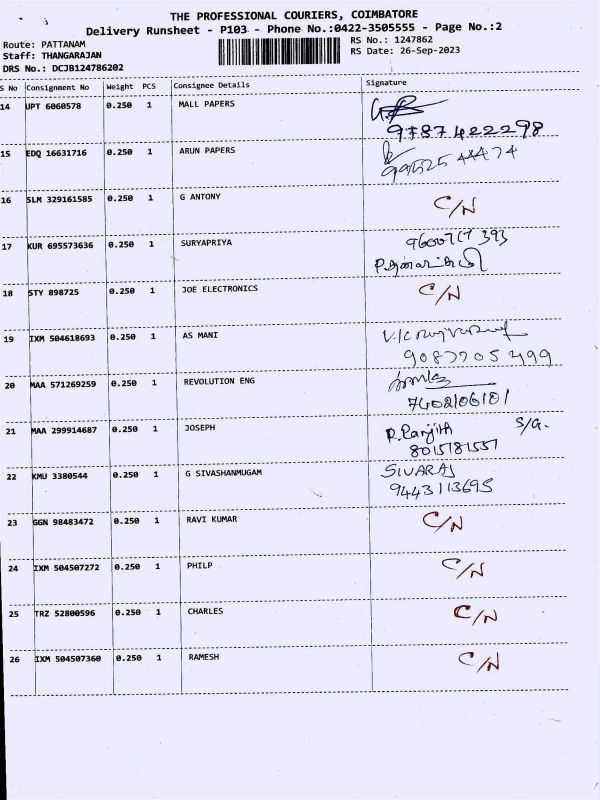 THE PROFESSIONAL COURIERS, COIMBATORE
Delivery Runsheet - P103 - Phone No.:0422-3505555 - Page No.:2
Route: PATTANAM
RS No.: 1247862
Staff: THANGARAJAN
RS Date: 26-Sep-2023
DRS No.: DCJB124786202
S No Consignment No Weight PCS Consignee Details Signature
14 UPT 6060578 0.250 1 MALL PAPERS
9787422298
15 EDQ 16631716 0.250 1 ARUN PAPERS
9952544474
16 SLM 329161585 0.250 1 G ANTONY C/N
17 KUR 695573636 0.250 1 SURYAPRIYA
18 STY 898725 0.250 1 JOE ELECTRONICS C/N
19 IXM 504618693 0.250 1 AS MANI
9087705499
20 MAA 571269259 0.250 1 REVOLUTION ENG
7402106101
21 MAA 299914687 0.250 1 JOSEPH R. Ranjith S/G.
8015181551
22 KMU 3380544 0.250 1 G SIVASHANMUGAM SIVARAJ
9443113695
23 GGN 98483472 0.250 1 RAVI KUMAR C/N
24 IXM 504507272 0.250 1 PHILP C/N
25 TRZ 52800596 0.250 1 CHARLES C/N
26 IXM 504507360 0.250 1 RAMESH C/N